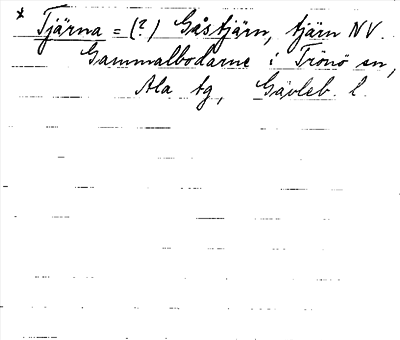 * Tjärna = (?) Gåstjärn, tjärn NV.
Gammalbodarne i Trönö sn,
Ala tg, Gävleb. l.